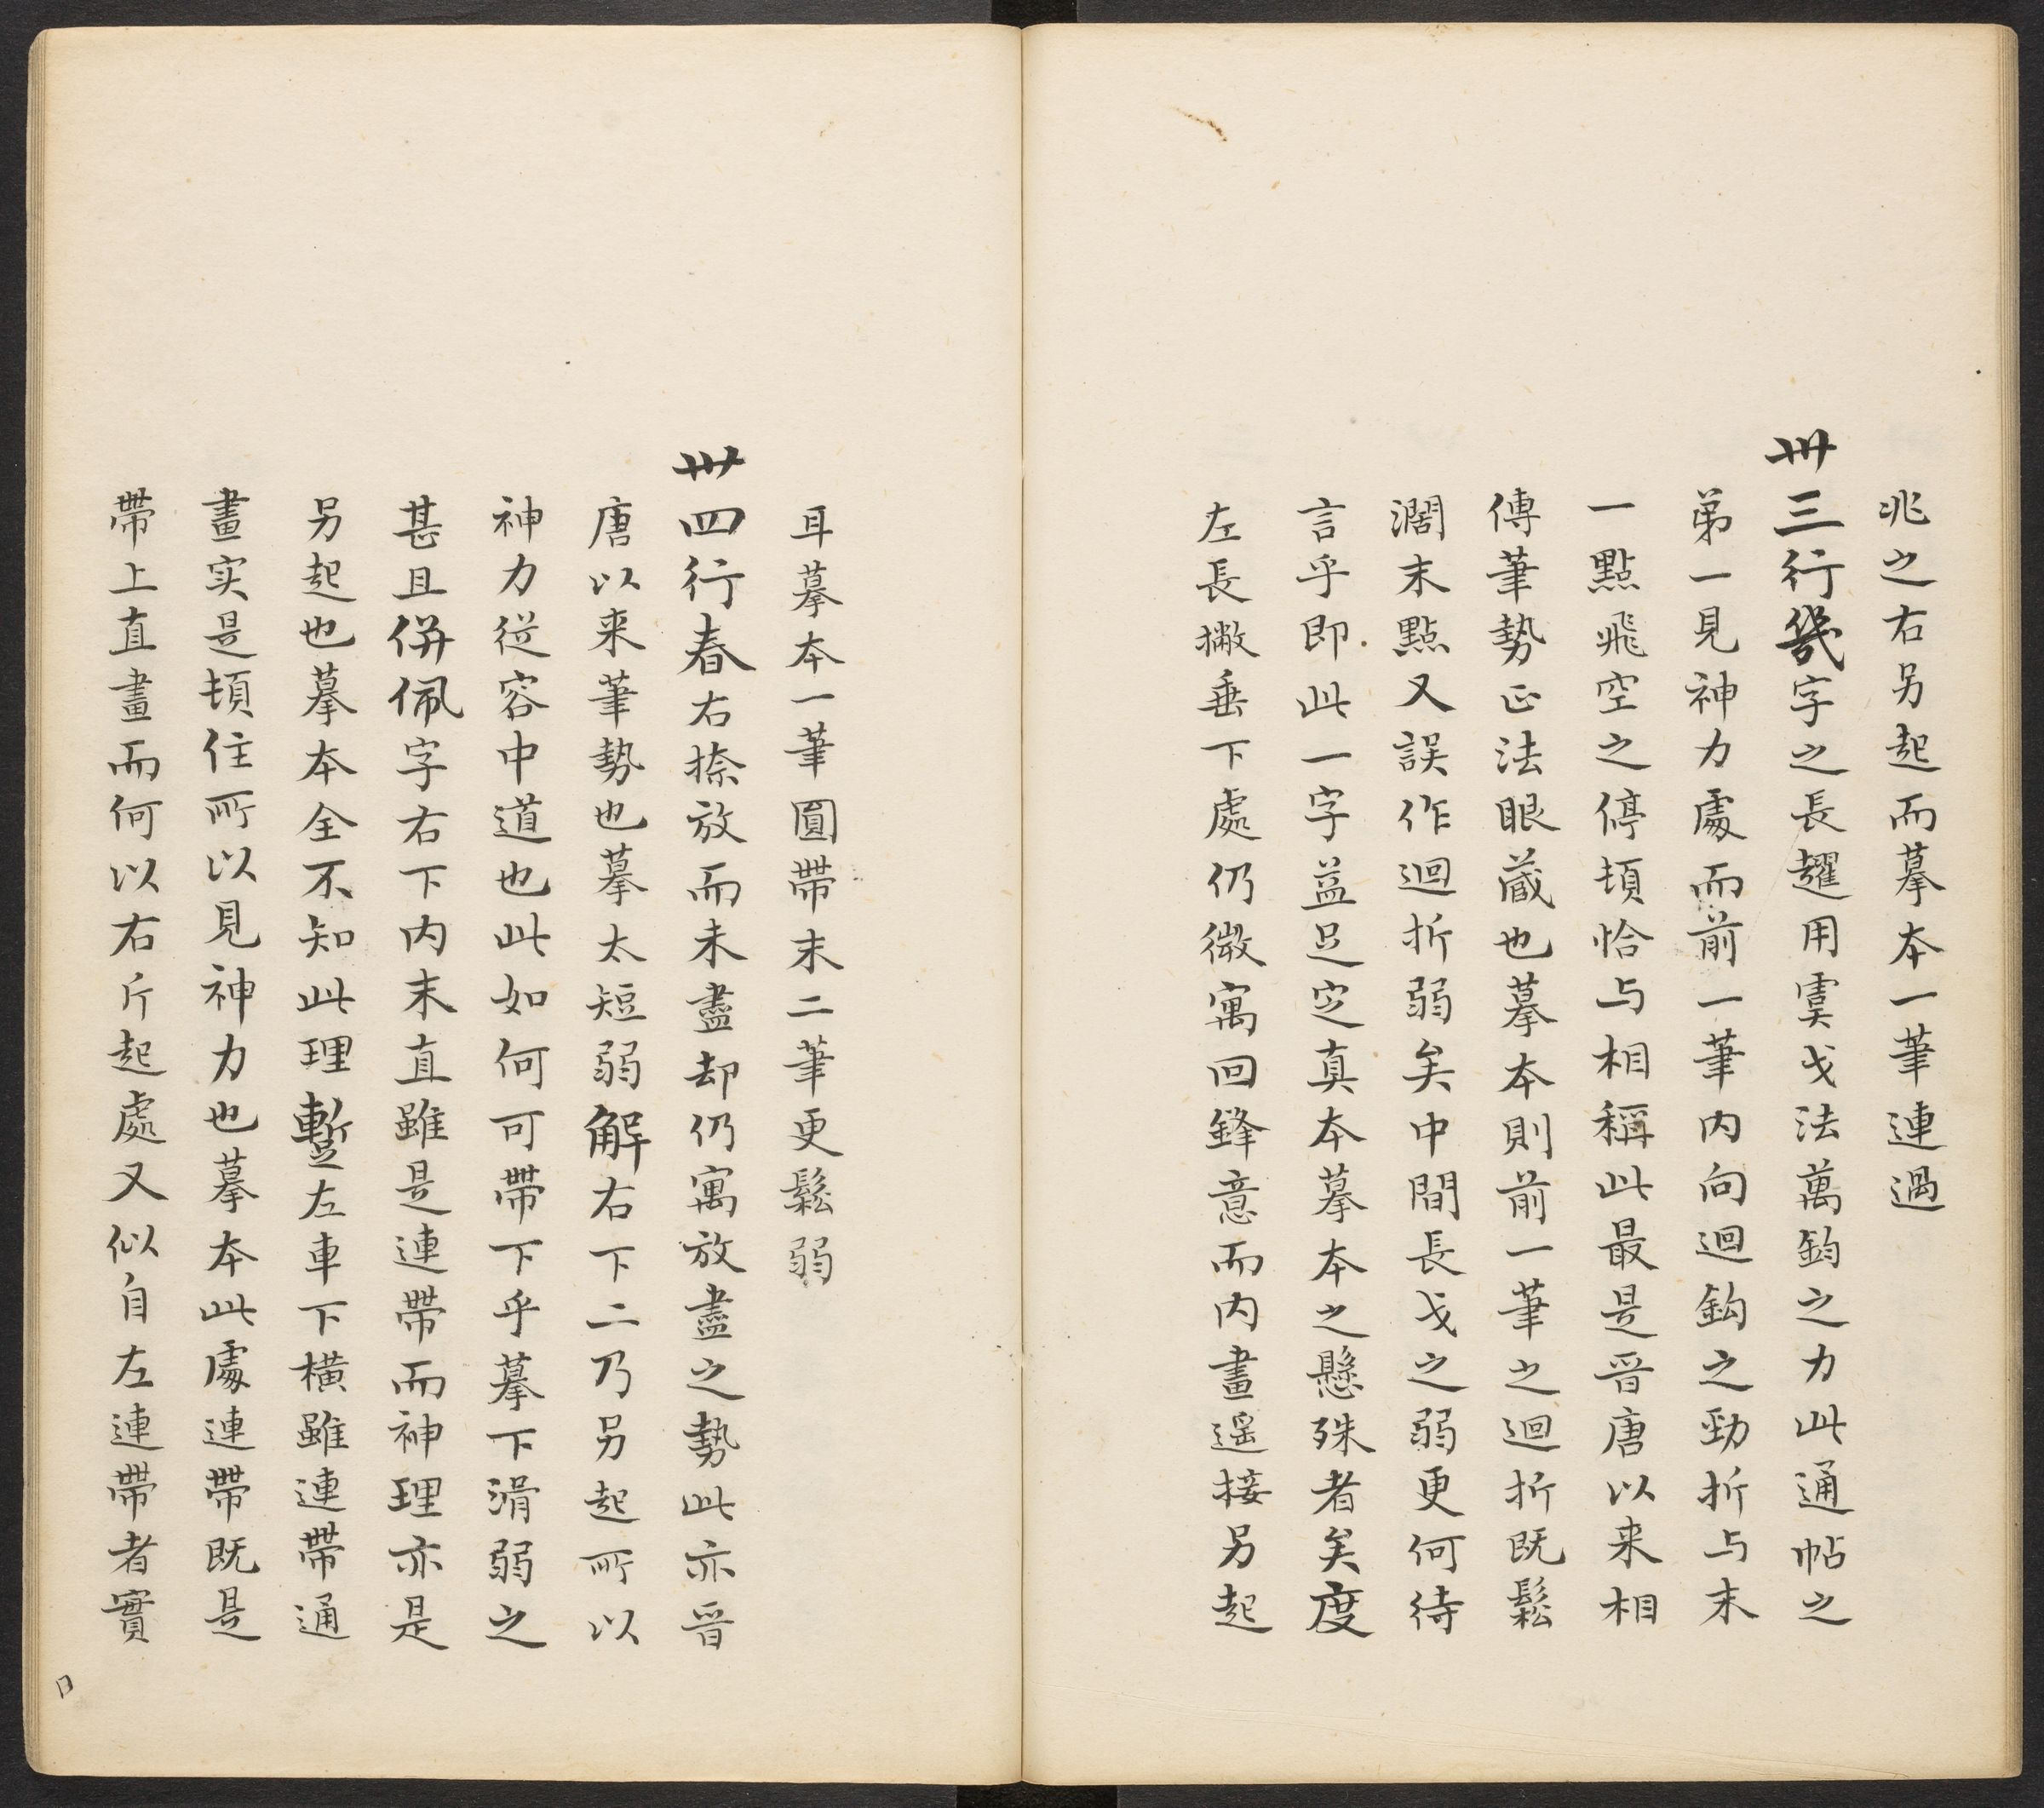 兆之右另起而摹本一筆連過
卅三行幾字之長趯用寞戈法萬鈞之力此通帖之
弟一見神力處而前一筆内向迴鈎之勁折与末
一點飛空之停頓恰与相稱此最是晋唐以来相
傳筆勢正法眼蔵也摹本則前一筆之迴折既鬆
濶末點又誤作迴折弱矣中間長戈之弱更何待
言乎即此一字益足定真本摹本之懸殊者矣度
左長撇垂下處仍微寓回鋒意而内畫遥接另起
耳摹本一筆圓帶末二筆更鬆弱
卅四行春右捺放而未盡却仍寓放盡之勢此亦晋
唐以来筆勢也摹太短弱解右下二乃另起所以
神力從容中道也此如何可帶下乎摹下滑弱之
甚且併佩字右下内末直雖是連帶而神理亦是
另起也摹本全不知此理蹔左車下横雖連帶通
畫实是頓住所以見神力也摹本此處連帶既是
帶上直畫而何以右斤起處又似自左連帶者實